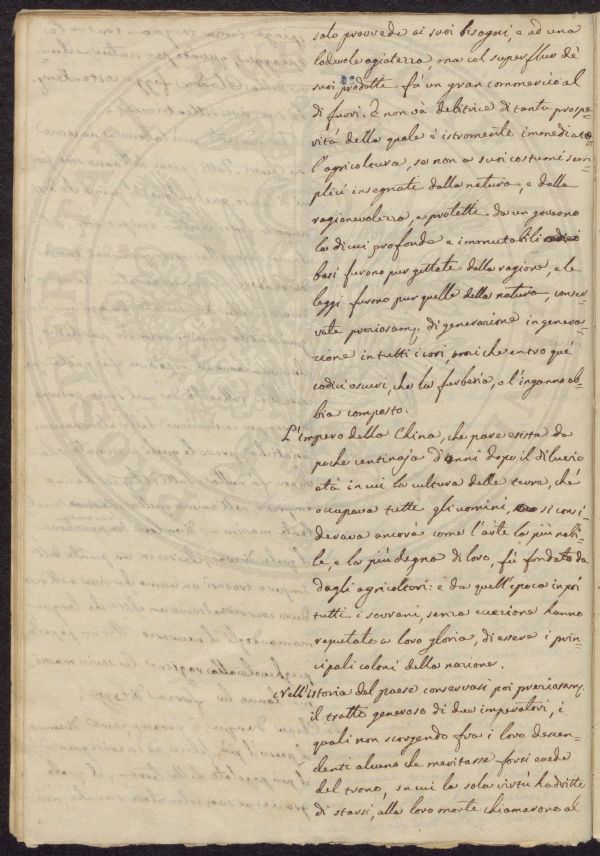 solo provvede ai suoi bisogni, e ad una
lodevole agiatezza, ma col superfluo dè
suoi prodotti fà un gran commercio al
di fuori. E non và debitrice di tanta prospe=
rità della quale è istromento immediato
l'agricoltura, se non a suoi costumi sem=
plici insegnati dalla natura, e dalla
ragionevolezza, e protetti da un governo
la di cui profonde e immutabili
basi furono pur gettate dalla ragione, e le
leggi furono pur quelle della natura, conser=
vate preziosam. di generazione in genera=
zione in tutti i cori, anzi che entro que'
codici oscuri, che la furberia, o l'inganno ab=
bia composto.
L'Impero della China, che pare esista da
poche centinaja d'anni dopo il diluvio
età in cui la cultura delle terre, che
occupava tutti gli uomini, si consi=
derava ancora come l'arte la più nobi=
le, e la più degna di loro, fù fondato da
dagli agricoltori: e da quell'epoca in poi
tutti i sovrani, senza eccezione hanno
reputato a loro gloria, di essere i prin=
cipali coloni della nazione.
Nell'istoria del paese conservasi poi preziosam.
il tratto generoso di due imperatori, i
quali non scorgendo fra i loro discen=
denti alcuno che meritasse farsi erede
del trono, su cui la sola virtù ha dritto
di starsi, alla loro morte chiamarono al